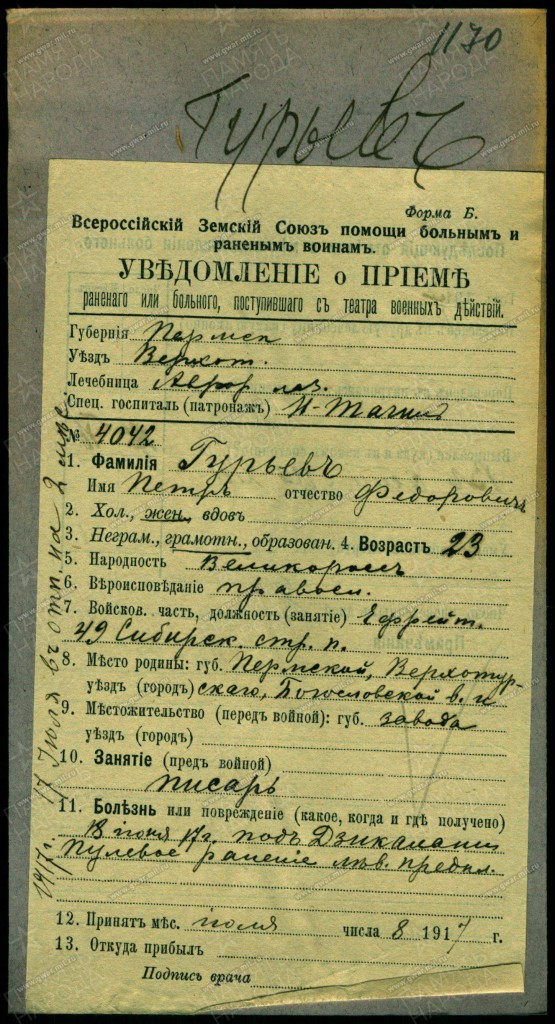 1170
Гурьевъ
Форма Б.
Всероссійскій Земскій Союзъ помощи больнымъ и
раненымъ воинамъ.
УВѢДОМЛЕНІЕ о ПРІЕМѢ
раненаго или больного, поступившаго съ театра военныхъ дѣйствій.
Губернія Пермск
Уѣздъ Верхот.
Лечебница леч.
Спец. госпиталь (патронажъ) Н-Тагил
№ 4042
1. Фамилія Гурьевъ
Имя Петръ отчество Федоровичъ
2. Хол., жен., вдовъ
3. Неграм., грамотн., образован. 4. Возрастъ 23
5. Народность Великороссъ
6. Вѣроисповѣданіе правосл.
7. Войсков. часть, должность (занятіе) Ефрейт.
49 Сибирск. стр. п.
8. Мѣсто родины: губ. Пермской, Верхотур-
уѣздъ (городъ) скаго, Богословской в. и
9. Мѣстожительство (передъ войной): губ. завода
уѣздъ (городъ)
10. Занятіе (предъ войной)
писарь
11. Болѣзнь или поврежденіе (какое, когда и гдѣ получено)
18 іюня 17 г. подъ
Пулевое раненіе лѣв. предпл.
12. Принятъ мѣс. іюля числа 8 1917 г.
13. Откуда прибылъ
Подпись врача
1917 г. 17 Іюля въ отп. на 2 мѣс.
www.gwar.mil.ru
ПАМЯТЬ НАРОДА